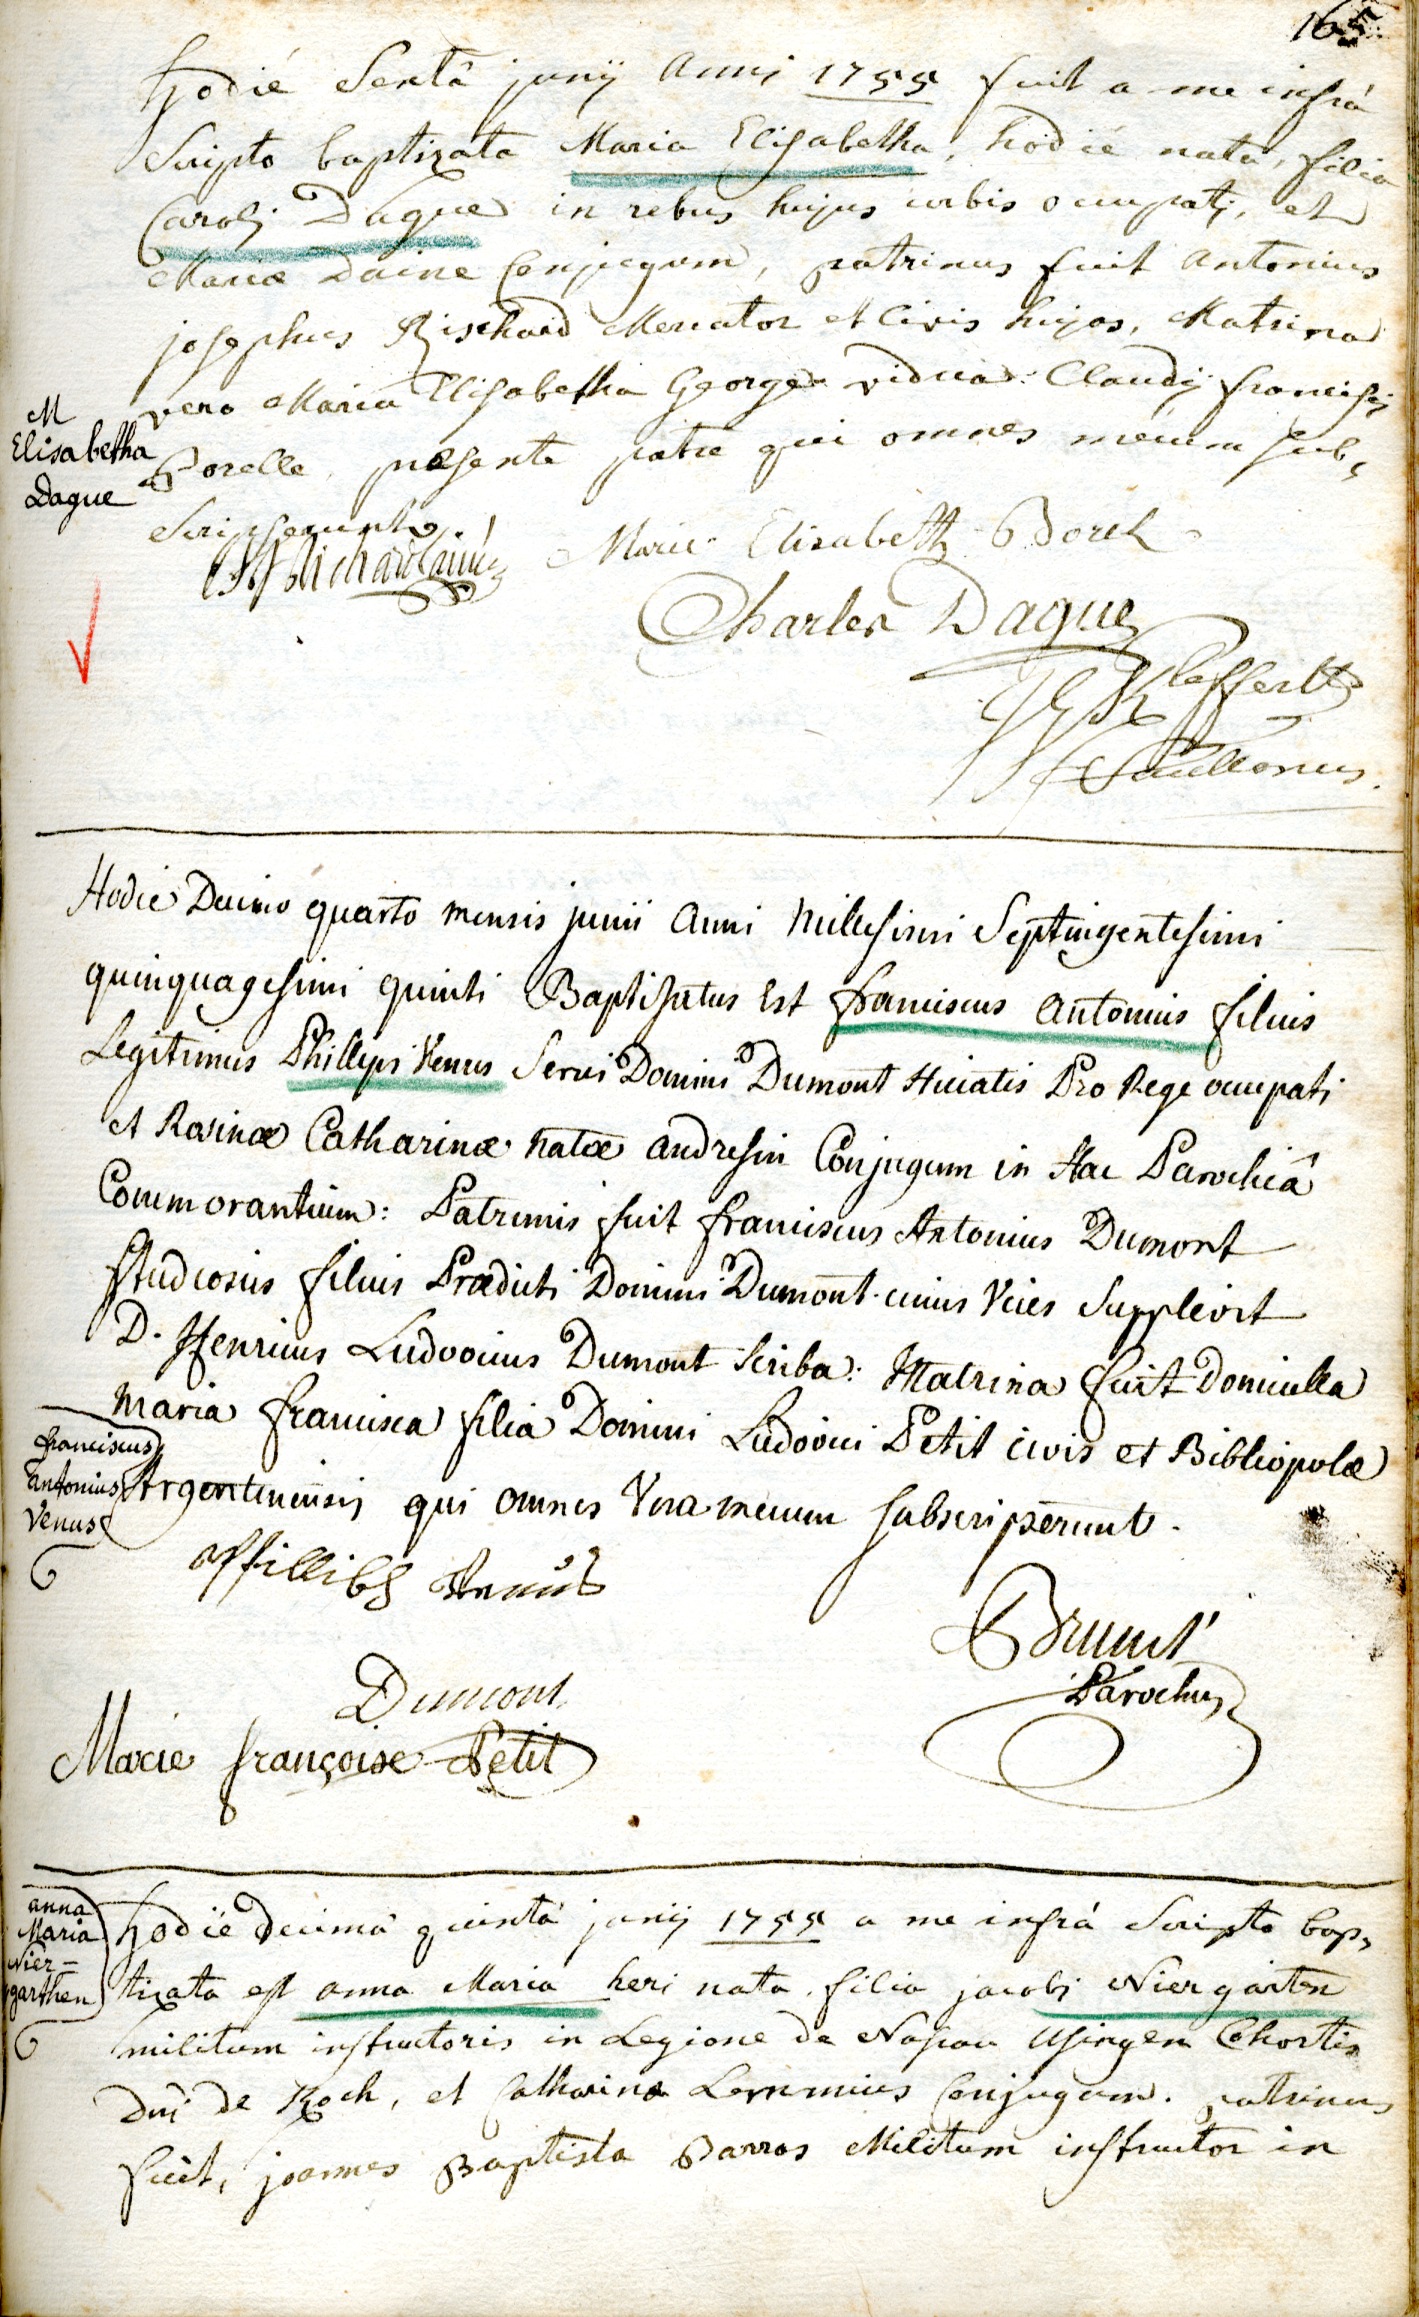 165
hodiè Sextâ junij Anni 1755 fuit a me infrá
Scripto baptizata Maria Elisabetha, hodiè nata, filia
Carolj Dague in rebus hujus urbis occupatj, et
Mariæ Daine Conjugum, patrinus fuit Antonius
josephus Rischard Mercator et Civis hujas, Matrina
vero Maria Elisabetha George vidua Claudij francisj
Borelle, præsente patre qui omnes mecum sub,
M
Elisabetha
Dague
Scripserunt.
Marie Elisabeth Borel
Charles Dague
Hodie Decimo quarto mensis junii Anni Millesimi Septingentesimi
quinquagesimi quinti Baptisatus Est franciscus antonius filius
Legitimus Phillypi Venus Servi Domini Dumont Hiciatis Pro Rege occupati
et Rosinæ Catharinæ natæ andresin Conjugum in Hac Parochiâ
Commorantium: Patrinus fuit franciscus Antonius Dumont
studiosus filius Prædicti Domini Dumont cuius Vices Supplevit
D. Henricus Ludovicus Dumont Scriba: Matrina fuit Domicella
Maria francisca filia Domini Ludovici Petit civis et Bibliopolæ
Argentinensis qui omnes Una mecum subscripserunt.
franciscus
antonius
Venus
Dumont
Marie françoise Petit
Parochus
anna
Maria
Nier=
garthen
hodïe decimâ quintâ junij 1755 a me infrá Scripto bap,
tizata est anna Maria heri nata, filia jacobj Niergarten
militum instructoris in Legione de Nassau Usingen Cohortis
Dnj de Koch, et Catharinæ Lemmius Conjugum. patrinus
fuit, joannes Baptista Barros Militum instructor in